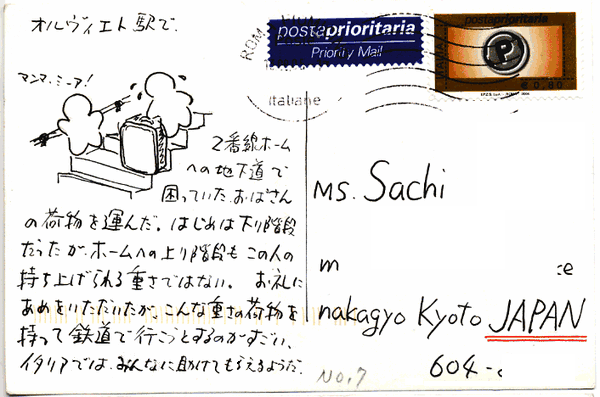 オルヴィエト駅で.
マンマ・ミーア!
2番線ホーム
への地下道で
困っていた、おばさん
の荷物を運んだ。はじめは下り階段
だったが、ホームへの上り階段も この人の
持ち上げられる重さではない。 お礼に
あめをいただいたが、こんな重さの荷物を
持って鉄道で行こうとするのがすごい、
イタリアでは、みんなに助けてもらえるようだ.
No.7
postaprioritaria
Priority Mail
ROM
Italiane
postaprioritaria
P
€0,80
Ms. Sachi
m
ce
nakagyo Kyoto JAPAN
604-